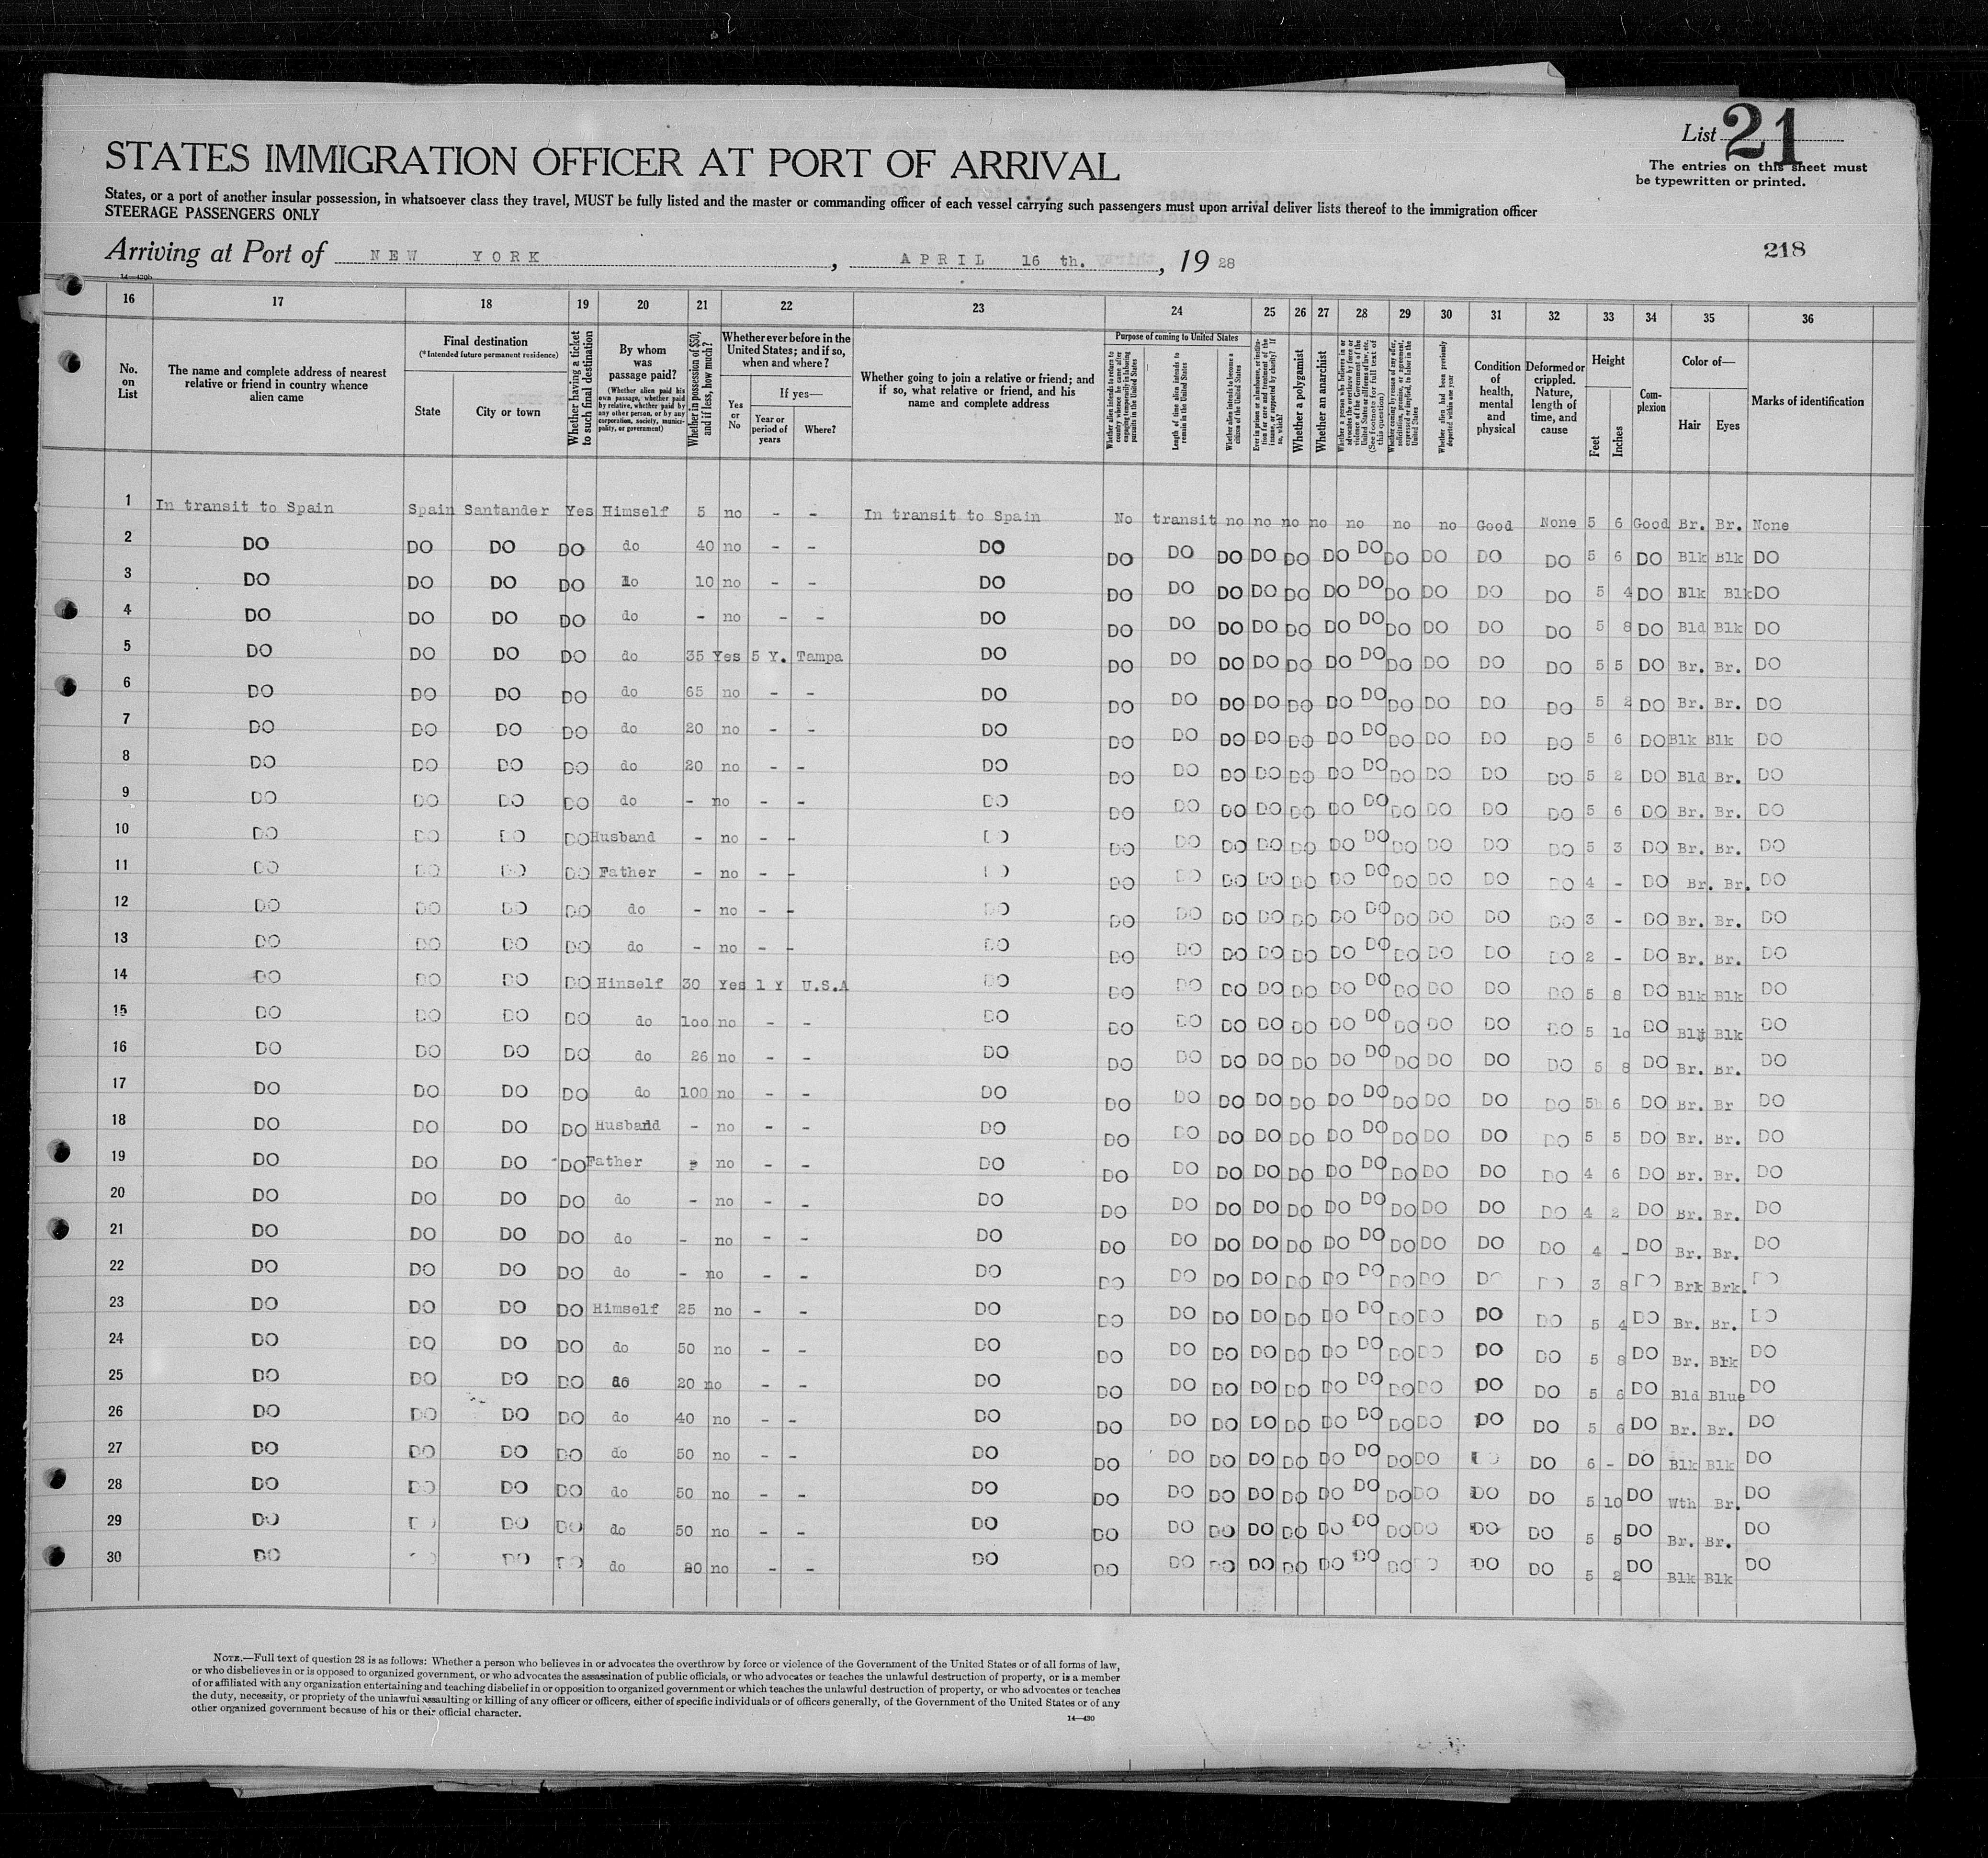 List 21
The entries on this sheet must
be typewritten or printed.
STATES IMMIGRATION OFFICER AT PORT OF ARRIVAL
States, or a port of another insular possession, in whatsoever class they travel, MUST be fully listed and the master or commanding officer of each vessel carrying such passengers must upon arrival deliver lists thereof to the immigration officer
STEERAGE PASSENGERS ONLY
218
Arriving at Port of NEW YORK, APRIL 16 th., 19 28
14—430b
16 17 18 19 20 21 22 23 24 25 26 27 28 29 30 31 32 33 34 35 36
No. on List
The name and complete address of nearest relative or friend in country whence alien came
Final destination
(*Intended future permanent residence)
State
City or town
Whether having a ticket to such final destination
By whom was passage paid?
(Whether alien paid his own passage, whether paid by relative, whether paid by any other person, or by any corporation, society, municipality, or government)
Whether in possession of $50, and if less, how much?
Whether ever before in the United States; and if so, when and where?
Yes or No
If yes—
Year or period of years
Where?
Whether going to join a relative or friend; and if so, what relative or friend, and his name and complete address
Purpose of coming to United States
Whether alien intends to return to country whence he came after engaging temporarily in laboring pursuits in the United States
Length of time alien intends to remain in the United States
Whether alien intends to become a citizen of the United States
Ever in prison or almshouse, or institution for care and treatment of the insane, or supported by charity? If so, which?
Whether a polygamist
Whether an anarchist
Whether a person who believes in or advocates the overthrow by force or violence of the Government of the United States or all forms of law, etc. (See footnote for full text of this question)
Whether coming by reason of any offer, solicitation, promise, or agreement, expressed or implied, to labor in the United States
Whether alien had been previously deported within one year
Condition of health, mental and physical
Deformed or crippled. Nature, length of time, and cause
Height
Feet
Inches
Complexion
Color of—
Hair
Eyes
Marks of identification
1 In transit to Spain Spain Santander Yes Himself 5 no - - In transit to Spain No transit no no no no no no no Good None 5 6 Good Br. Br. None
2 DO DO DO DO do 40 no - - DO DO DO DO DO DO DO DO DO DO DO DO 5 6 DO Blk Blk DO
3 DO DO DO DO do 10 no - - DO DO DO DO DO DO DO DO DO DO DO DO 5 4 DO Blk Blk DO
4 DO DO DO DO do - no - - DO DO DO DO DO DO DO DO DO DO DO DO 5 8 DO Bld Blk DO
5 DO DO DO DO do 35 Yes 5 Y. Tampa DO DO DO DO DO DO DO DO DO DO DO DO 5 5 DO Br. Br. DO
6 DO DO DO DO do 65 no - - DO DO DO DO DO DO DO DO DO DO DO DO 5 2 DO Br. Br. DO
7 DO DO DO DO do 20 no - - DO DO DO DO DO DO DO DO DO DO DO DO 5 6 DO Blk Blk DO
8 DO DO DO DO do 20 no - - DO DO DO DO DO DO DO DO DO DO DO DO 5 2 DO Bld Br. DO
9 DO DO DO DO do - no - - DO DO DO DO DO DO DO DO DO DO DO DO 5 6 DO Br. Br. DO
10 DO DO DO DO Husband - no - - DO DO DO DO DO DO DO DO DO DO DO DO 5 3 DO Br. Br. DO
11 DO DO DO DO Father - no - - DO DO DO DO DO DO DO DO DO DO DO DO 4 - DO Br. Br. DO
12 DO DO DO DO do - no - - DO DO DO DO DO DO DO DO DO DO DO DO 3 - DO Br. Br. DO
13 DO DO DO DO do - no - - DO DO DO DO DO DO DO DO DO DO DO DO 2 - DO Br. Br. DO
14 DO DO DO DO Hinself 30 Yes 1 Y U.S.A DO DO DO DO DO DO DO DO DO DO DO DO 5 8 DO Blk Blk DO
15 DO DO DO DO do 1oo no - - DO DO DO DO DO DO DO DO DO DO DO DO 5 1o DO Blk Blk DO
16 DO DO DO DO do 26 no - - DO DO DO DO DO DO DO DO DO DO DO DO 5 8 DO Br. Br. DO
17 DO DO DO DO do 100 no - - DO DO DO DO DO DO DO DO DO DO DO DO 5 6 DO Br. Br DO
18 DO DO DO DO Husband - no - - DO DO DO DO DO DO DO DO DO DO DO DO 5 5 DO Br. Br. DO
19 DO DO DO DO Father - no - - DO DO DO DO DO DO DO DO DO DO DO DO 4 6 DO Br. Br. DO
20 DO DO DO DO do - no - - DO DO DO DO DO DO DO DO DO DO DO DO 4 2 DO Br. Br. DO
21 DO DO DO DO do - no - - DO DO DO DO DO DO DO DO DO DO DO DO 4 - DO Br. Br. DO
22 DO DO DO DO do - no - - DO DO DO DO DO DO DO DO DO DO DO DO 3 8 DO Brk Brk. DO
23 DO DO DO DO Himself 25 no - - DO DO DO DO DO DO DO DO DO DO DO DO 5 4 DO Br. Br. DO
24 DO DO DO DO do 50 no - - DO DO DO DO DO DO DO DO DO DO DO DO 5 8 DO Br. Blk DO
25 DO DO DO DO do 20 no - - DO DO DO DO DO DO DO DO DO DO DO DO 5 6 DO Bld Blue DO
26 DO DO DO DO do 40 no - - DO DO DO DO DO DO DO DO DO DO DO DO 5 6 DO Br. Br. DO
27 DO DO DO DO do 50 no - - DO DO DO DO DO DO DO DO DO DO DO DO 6 - DO Blk Blk DO
28 DO DO DO DO do 50 no - - DO DO DO DO DO DO DO DO DO DO DO DO 5 10 DO Wth Br. DO
29 DO DO DO DO do 50 no - - DO DO DO DO DO DO DO DO DO DO DO DO 5 5 DO Br. Br. DO
30 DO DO DO do no - - DO DO DO DO DO DO DO DO DO DO DO DO 5 2 DO Blk Blk DO
NOTE.—Full text of question 28 is as follows: Whether a person who believes in or advocates the overthrow by force or violence of the Government of the United States or of all forms of law,
or who disbelieves in or is opposed to organized government, or who advocates the assassination of public officials, or who advocates or teaches the unlawful destruction of property, or is a member
of or affiliated with any organization entertaining and teaching disbelief in or opposition to organized government or which teaches the unlawful destruction of property, or who advocates or teaches
the duty, necessity, or propriety of the unlawful assaulting or killing of any officer or officers, either of specific individuals or of officers generally, of the Government of the United States or of any
other organized government because of his or their official character.
14—430